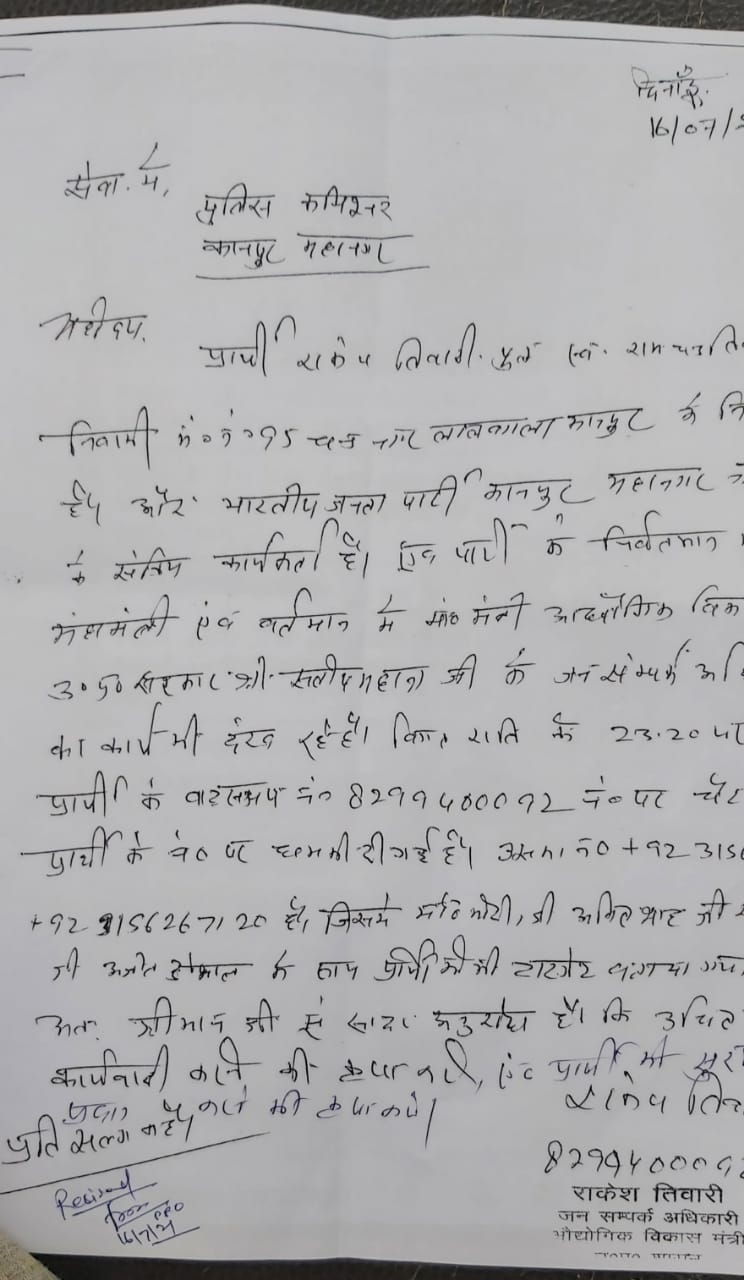 दिनाँक
16/07/2
सेवा में,
पुलिस कमिश्नर
कानपुर महानगर
महोदय,
प्रार्थी राकेश तिवारी पुत्र स्व. राम चन्द्र ति
निवासी म०नं०95 नगर लालबंगला कानपुर के नि
है। और भारतीय जनता पार्टी कानपुर महानगर
के सक्रिय कार्यकर्ता है। एवं पार्टी के निर्वतमान
महामंत्री एवं वर्तमान में मा० मंत्री औद्योगिक विका
उ०प्र० सरकार श्री सतीश महाना जी के जन सम्पर्क अधि
का कार्य भी देख रहे है। रात्रि के 23.20 पर
प्रार्थी के वाट्सअप नं० 8299400092 नं० पर चैट
प्रार्थी के नं० पर धमकी दी गई है। उसका नं० +92 3156
+92 3156267120 है, जिसमें मोदी, श्री अमित शाह जी
श्री अजीत डोभाल के साथ प्रार्थी को भी टारगेट बताया गया
अतः श्रीमान जी से सादर अनुरोध है। कि उचित
कार्यवाही करने की कृपा करें, एवं प्रार्थी को सुर
प्रदान करने की कृपा करें।
राकेश तिवा
प्रति सलग्न है।
829940009
Recived
from
PRO
16/7/21
राकेश तिवारी
जन सम्पर्क अधिकारी
औद्योगिक विकास मंत्री